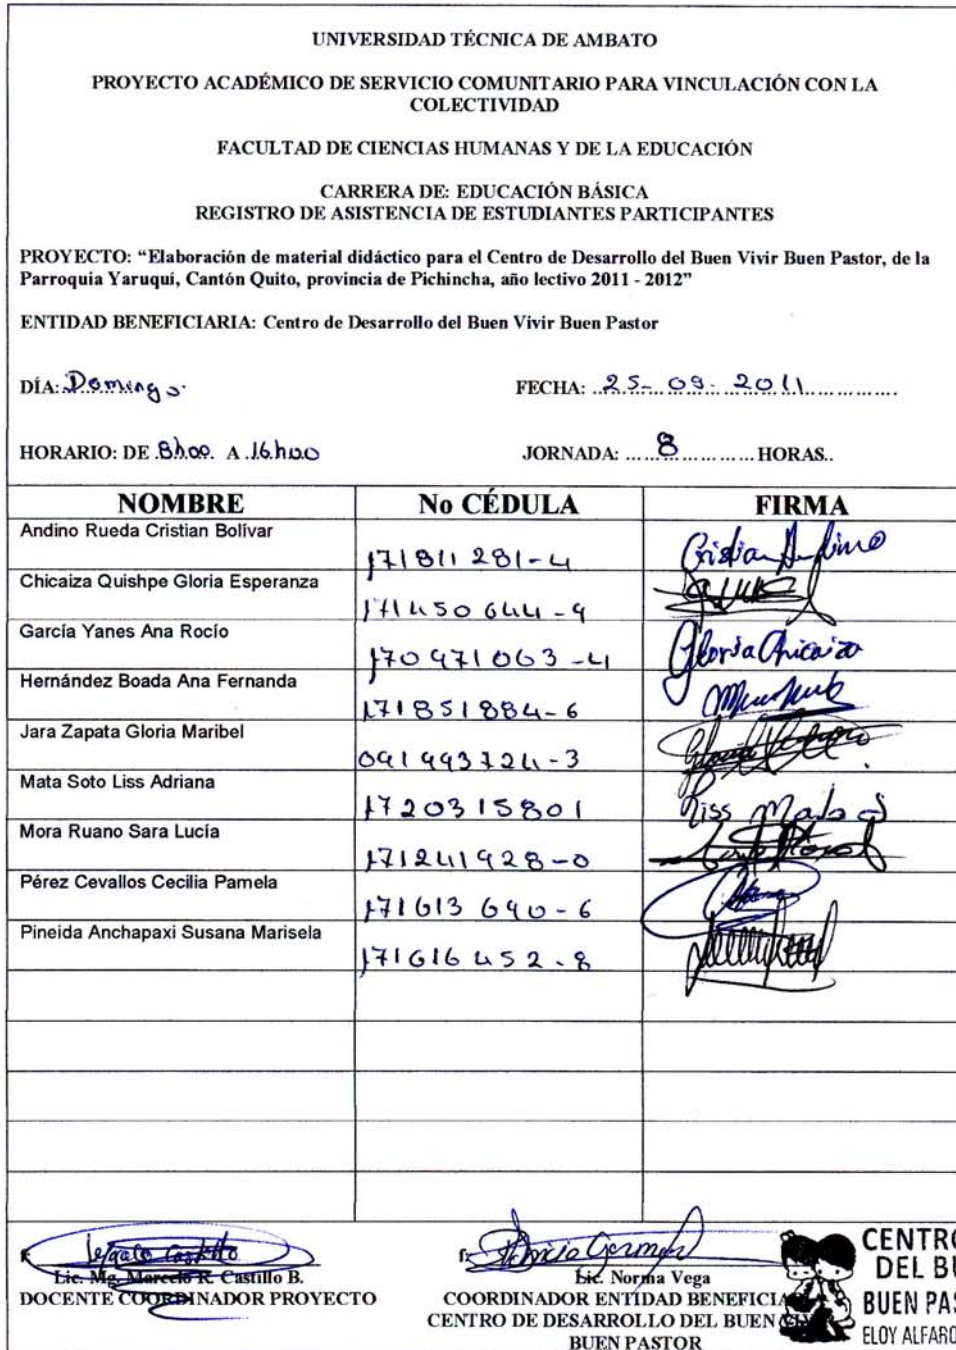 UNIVERSIDAD TÉCNICA DE AMBATO
PROYECTO ACADÉMICO DE SERVICIO COMUNITARIO PARA VINCULACIÓN CON LA
COLECTIVIDAD
FACULTAD DE CIENCIAS HUMANAS Y DE LA EDUCACIÓN
CARRERA DE: EDUCACIÓN BÁSICA
REGISTRO DE ASISTENCIA DE ESTUDIANTES PARTICIPANTES
PROYECTO: “Elaboración de material didáctico para el Centro de Desarrollo del Buen Vivir Buen Pastor, de la
Parroquia Yaruquí, Cantón Quito, provincia de Pichincha, año lectivo 2011 - 2012”
ENTIDAD BENEFICIARIA: Centro de Desarrollo del Buen Vivir Buen Pastor
DÍA: Domingo. FECHA: 25-09-2011
HORARIO: DE 8h00 A 16h00 JORNADA: 8 HORAS..
NOMBRE No CÉDULA FIRMA
Andino Rueda Cristian Bolívar 171811281-4 Cristian Andino
Chicaiza Quishpe Gloria Esperanza 171450644-9
García Yanes Ana Rocío 170971063-4 Gloria Chicaiza
Hernández Boada Ana Fernanda 171851884-6
Jara Zapata Gloria Maribel 091993724-3
Mata Soto Liss Adriana 1720315801 Liss Mata S
Mora Ruano Sara Lucía 171241928-0
Pérez Cevallos Cecilia Pamela 171613640-6
Pineida Anchapaxi Susana Marisela 171616452-8
f: Castillo f:
Lic. Mg. Marcelo R. Castillo B. Lic. Norma Vega
DOCENTE COORDINADOR PROYECTO COORDINADOR ENTIDAD BENEFICIA
CENTRO DE DESARROLLO DEL BUEN
BUEN PASTOR
CENTRO
DEL BU
BUEN PAS
ELOY ALFARO